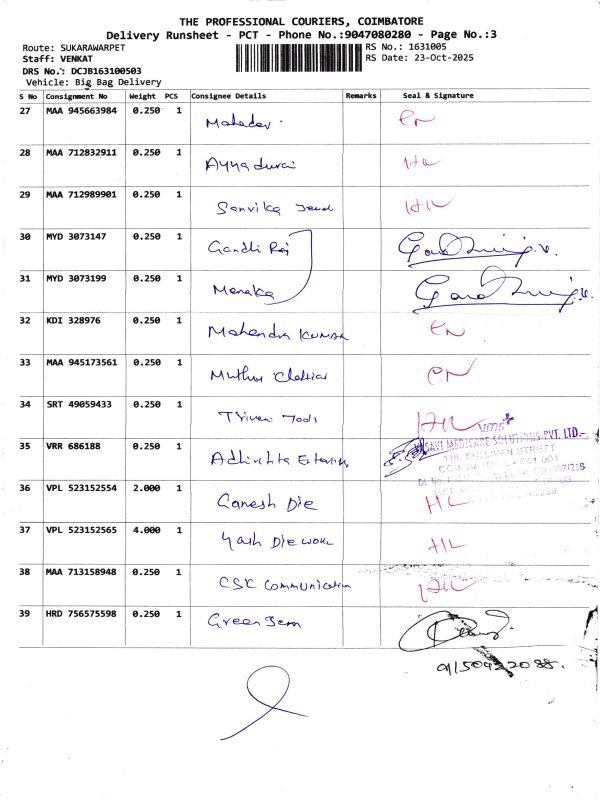 THE PROFESSIONAL COURIERS, COIMBATORE
Delivery Runsheet - PCT - Phone No.:9047080280 - Page No.:3
Route: SUKARAWARPET
RS No.: 1631005
Staff: VENKAT
RS Date: 23-Oct-2025
DRS No.: DCJB163100503
Vehicle: Big Bag Delivery
S No Consignment No Weight PCS Consignee Details Remarks Seal & Signature
27 MAA 945663984 0.250 1 Mahadev
28 MAA 712832911 0.250 1 Ayyadurai
29 MAA 712989901 0.250 1 Sanvika
30 MYD 3073147 0.250 1 Gandhi Raj
31 MYD 3073199 0.250 1 Menaka
32 KDI 328976 0.250 1 Mahendra Kumar
33 MAA 945173561 0.250 1 Muthu
34 SRT 49059433 0.250 1
35 VRR 686188 0.250 1
VMS+
SAVI MEDICARE SOLUTIONS PVT. LTD.
SULLIVAN STREET
36 VPL 523152554 2.000 1 Ganesh Die HL
37 VPL 523152565 4.000 1 Yash Die work HL
38 MAA 713158948 0.250 1 CSK Communication
39 HRD 756575598 0.250 1 Green